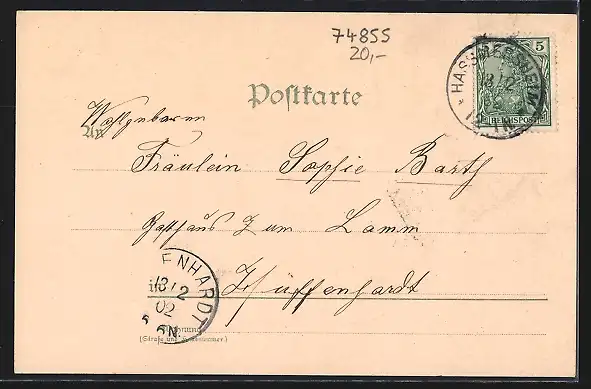 74855
20,-
Postkarte
5
REICHSPOST
HASSMERSHEIM
13/2
12-1N.
Wohlgeboren
An
Fräulein Sophie Barth
Gasthaus Zum Lamm
in Hüffenhardt
ENHARDT
13/2
02
6N.
Wohnung
(Straße und Hausnummer)